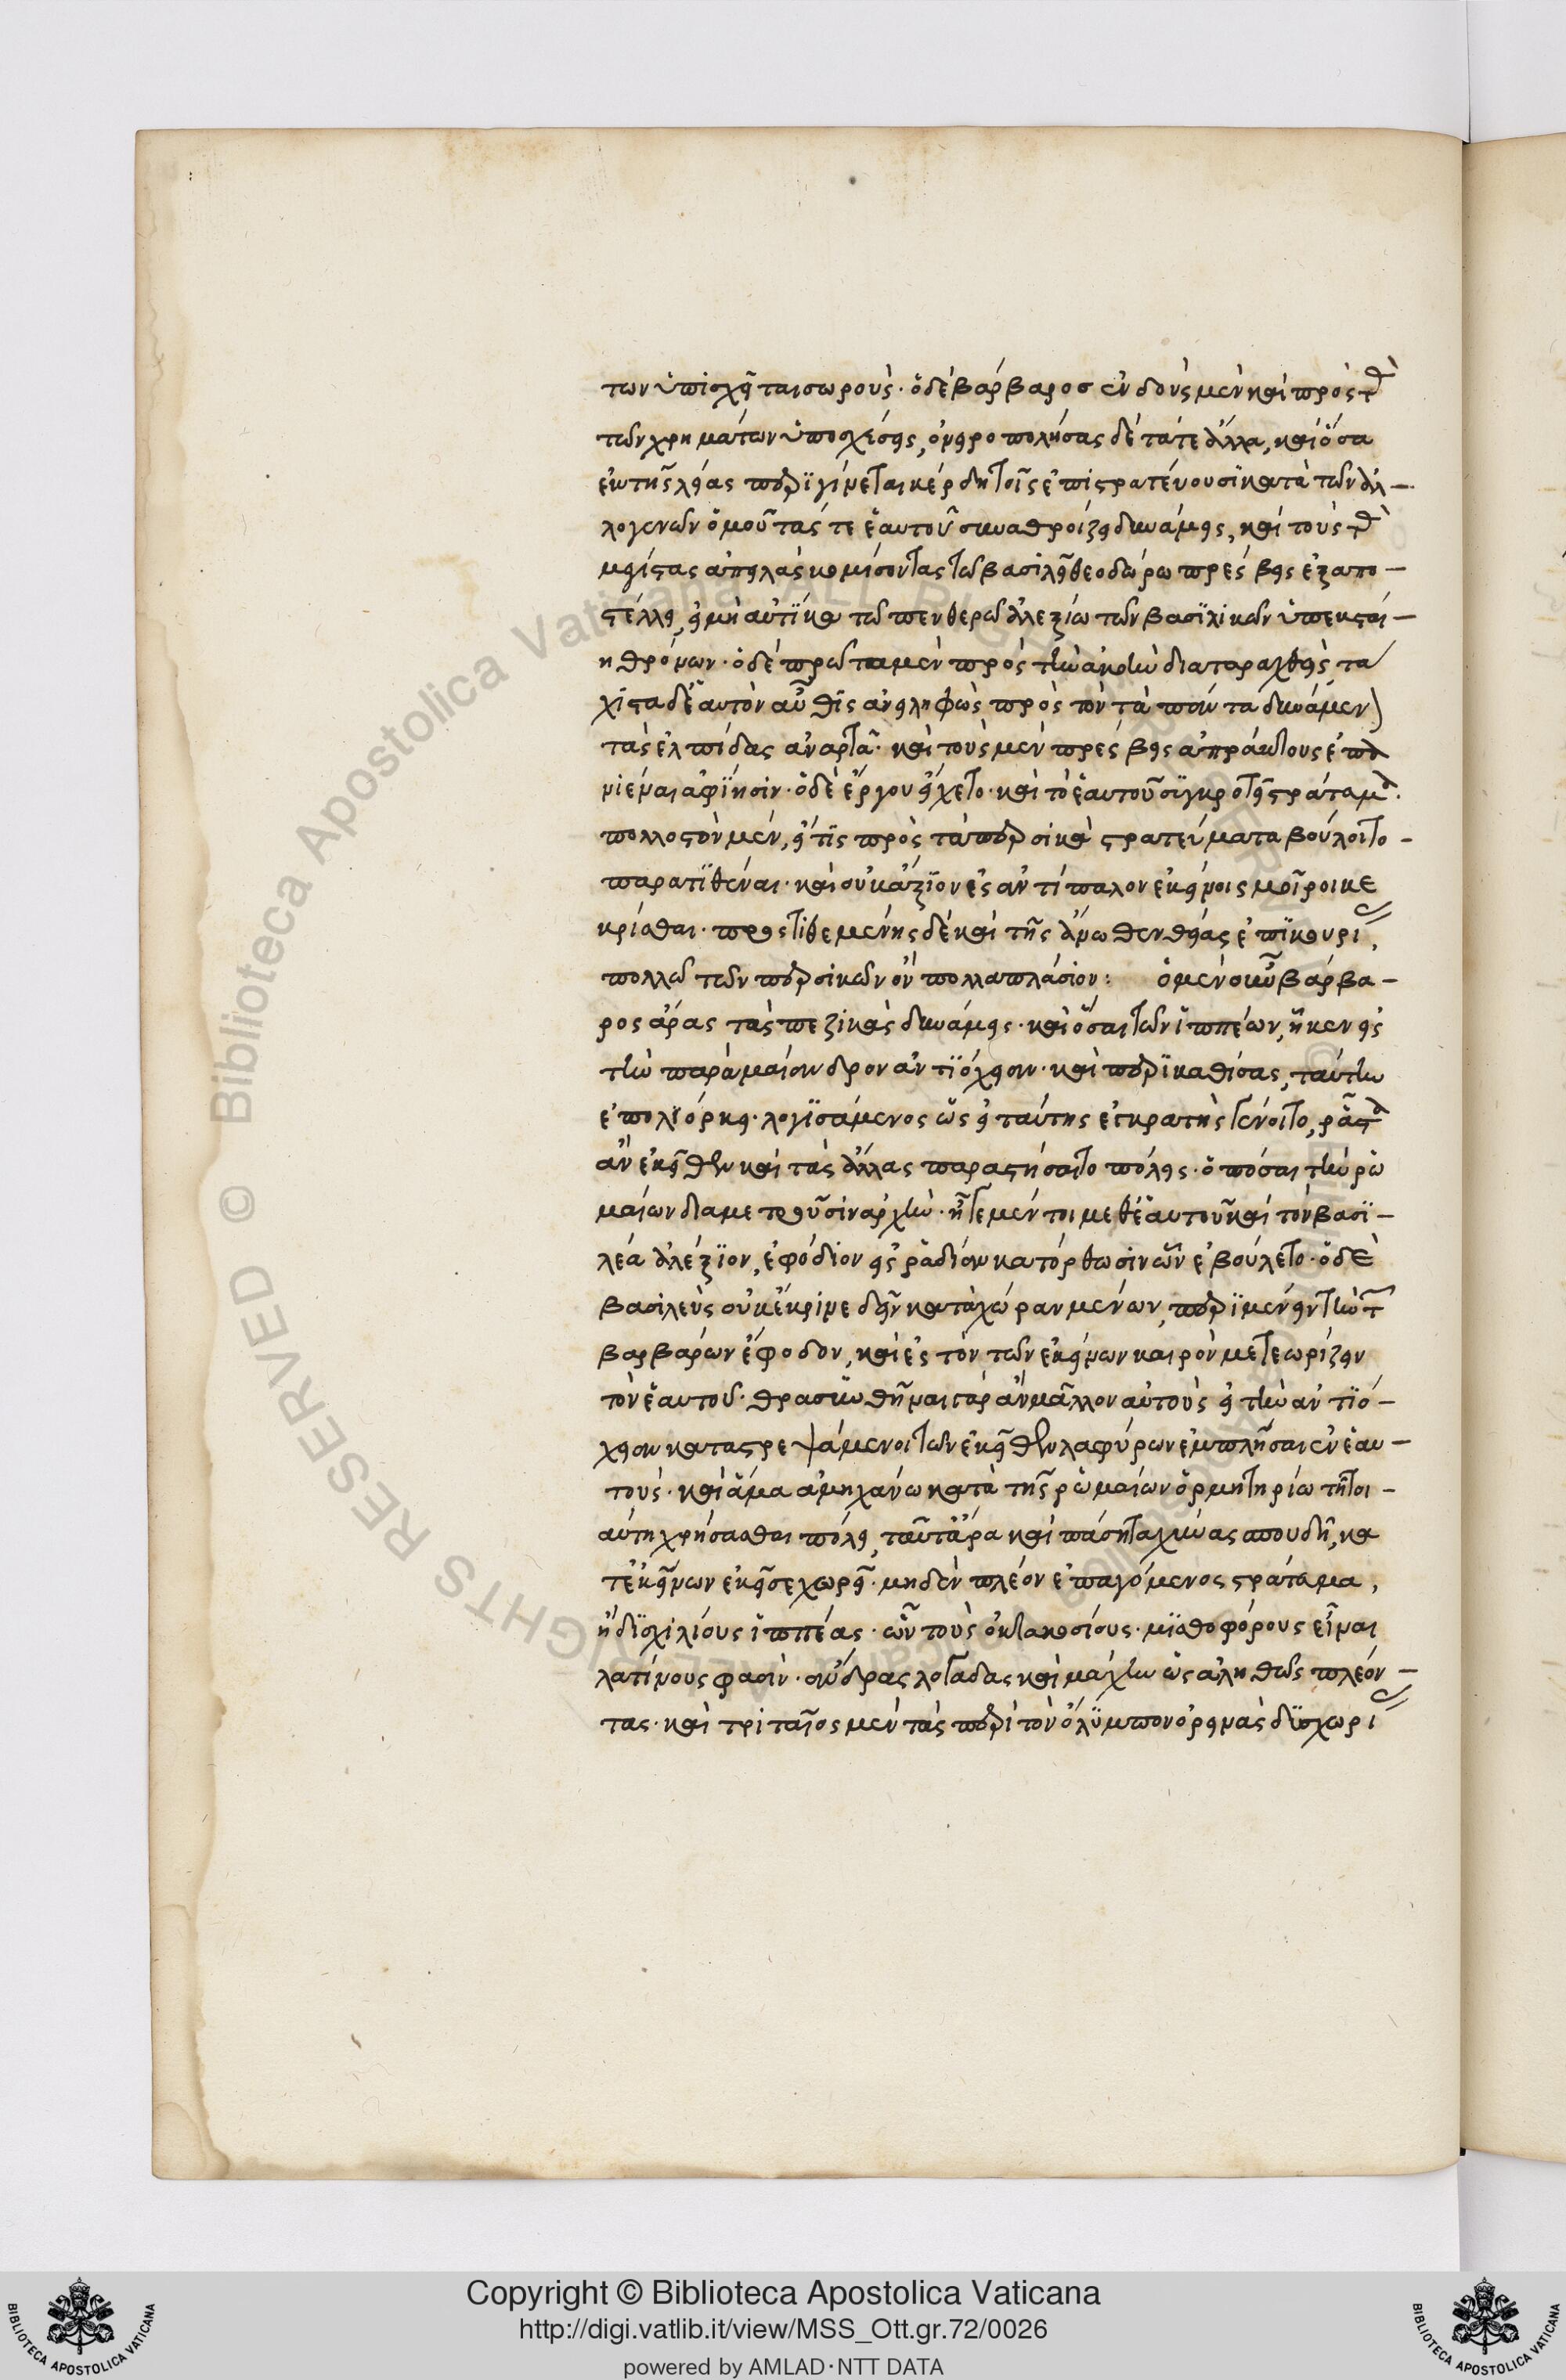 των ὑπισχνεῖται σωρούς. ὁ δὲ βάρβαρος ἐνδοὺς μὲν καὶ πρὸς τὰς
τῶν χρημάτων ὑποσχέσεις, ὀνειροπολήσας δὲ τά τε ἄλλα, καὶ ὅσα
ἐκ τῆς λείας περιγίνεται κέρδη τοῖς ἐπιστρατεύουσι κατὰ τῶν ἀλ-
λογενῶν ὁμοῦ τάς τε ἑαυτοῦ συναθροίζει δυνάμεις, καὶ τοὺς τὰς
μεγίστας ἀπειλὰς κομίσοντας τῷ βασιλεῖ θεοδώρῳ πρέσβεις ἐξαπο-
στέλλει, εἰ μὴ αὐτίκα τῷ πενθερῷ ἀλεξίῳ τῶν βασιλικῶν ὑπεκσταί-
η θρόνων. ὁ δὲ πρῶτα μὲν πρὸς τὴν ἀκοὴν διαταραχθεὶς, τα
χιστα δ' ἑαυτὸν αὖθις ἀνειληφὼς πρὸς τὸν τὰ πάντα δυνάμενον
τὰς ἐλπίδας ἀναρτᾷ. καὶ τοὺς μὲν πρέσβεις ἀπράκτους ἐπα
νιέναι ἀφίησιν. ὁ δὲ ἔργου εἴχετο. καὶ τὸ ἑαυτοῦ συγκροτεῖ στράτευμα.
πολλοστὸν μὲν, εἴ τις πρὸς τὰ περσικὰ στρατεύματα βούλοιτο-
παρατιθέναι. καὶ οὐκ ἄξιον ἐς ἀντίπαλον ἐκείνοις μοῖραν κε
κρίσθαι. προστιθεμένης δὲ καὶ τῆς ἄνωθεν θείας ἐπικουρί,
πολλῷ τῶν περσικῶν ὂν πολλαπλάσιον: ὁ μὲν οὖν βάρβα-
ρος ἄρας τὰς πεζικὰς δυνάμεις. καὶ ὅσαι τῶν ἱππέων, ἧκεν εἰς
τὴν παρὰ μαίανδρον ἀντιόχειαν. καὶ περικαθίσας, ταύτην
ἐπολιόρκει. λογισάμενος ὡς εἰ ταύτης ἐγκρατὴς γένοιτο, ρᾷστα
ἂν ἐκεῖθεν καὶ τὰς ἄλλας παραστήσαιτο πόλεις. ὁπόσαι τὴν ρω
μαίων διαμετροῦσιν ἀρχὴν. ἦγε μέν τοι μεθ' ἑαυτοῦ καὶ τὸν βασι-
λέα ἀλέξιον, ἐφόδιον εἰς ῥαδίαν κατόρθωσιν ὧν ἐβούλετο. ὁ δὲ
βασιλεὺς οὐκ ἔκρινε δεῖν κατὰ χώραν μένων, περιμένειν τὴν τῶν
βαρβάρων ἔφοδον, καὶ ἐς τὸν τῶν ἐκείνων καιρὸν μετεωρίζειν
τὸν ἑαυτοῦ. θρασυνθῆναι γὰρ ἂν μᾶλλον αὐτοὺς εἰ τὴν ἀντιό-
χειαν καταστρεψάμενοι τῶν ἐκεῖθεν λαφύρων ἐμπλῆσαιεν ἑαυ-
τούς. καὶ ἅμα ἀμηχάνῳ κατὰ τῆς ρωμαίων ὁρμητηρίῳ τῇ τοι-
αύτῃ χρήσασθαι πόλει, ταῦτ' ἄρα καὶ πάσῃ ταχύνας σπουδῇ, κα
τ' ἐκείνων ἐκεῖσε χωρεῖ. μηδὲν πλέον ἐπαγόμενος στράτευμα,
ἢ δισχιλίους ἱππέας. ὧν τοὺς ὀκτακοσίους. μισθοφόρους εἶναι
λατίνους φασὶν. ἄνδρας λογάδας καὶ μάχην ὡς ἀληθῶς πλέον-
τας. καὶ τριταῖος μὲν τὰς περὶ τὸν ὄλυμπον ὀρεινὰς δυσχωρί
Copyright © Biblioteca Apostolica Vaticana
http://digi.vatlib.it/view/MSS_Ott.gr.72/0026
powered by AMLAD·NTT DATA